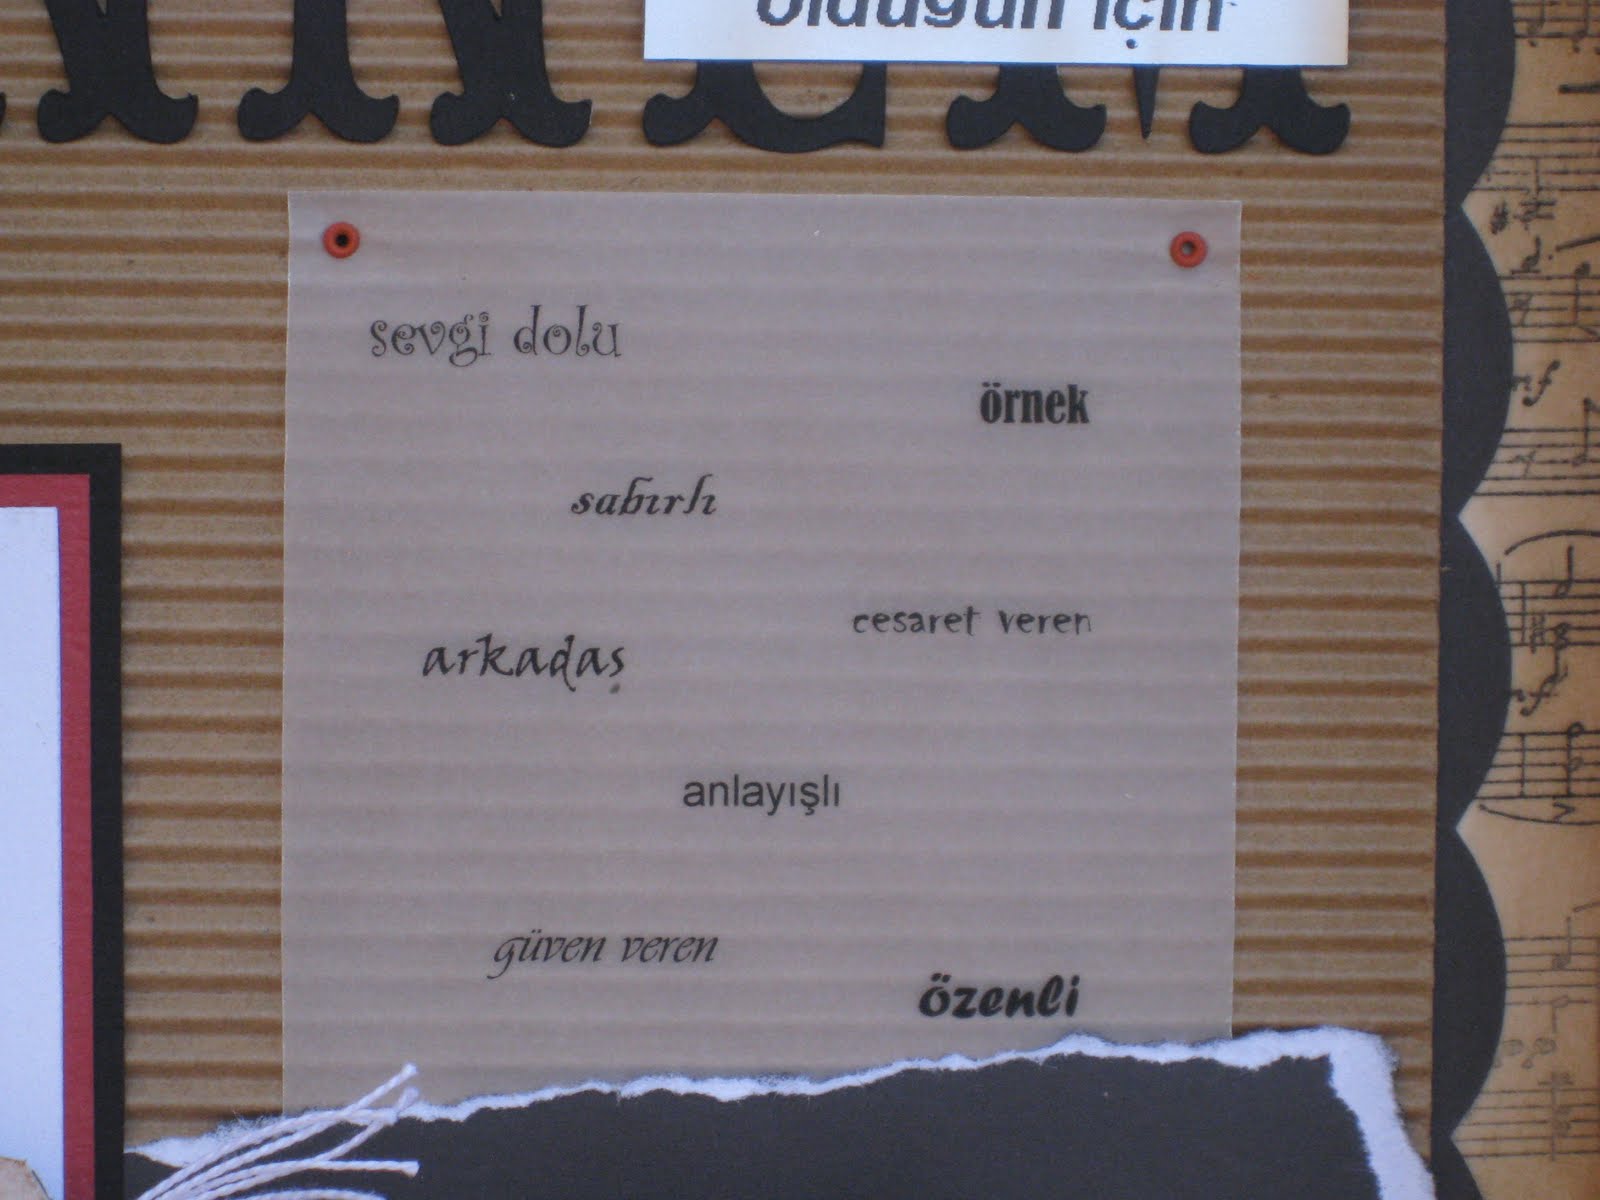 olduğun için
NNEM
sevgi dolu
örnek
sabırlı
cesaret veren
arkadaş
anlayışlı
güven veren
özenli